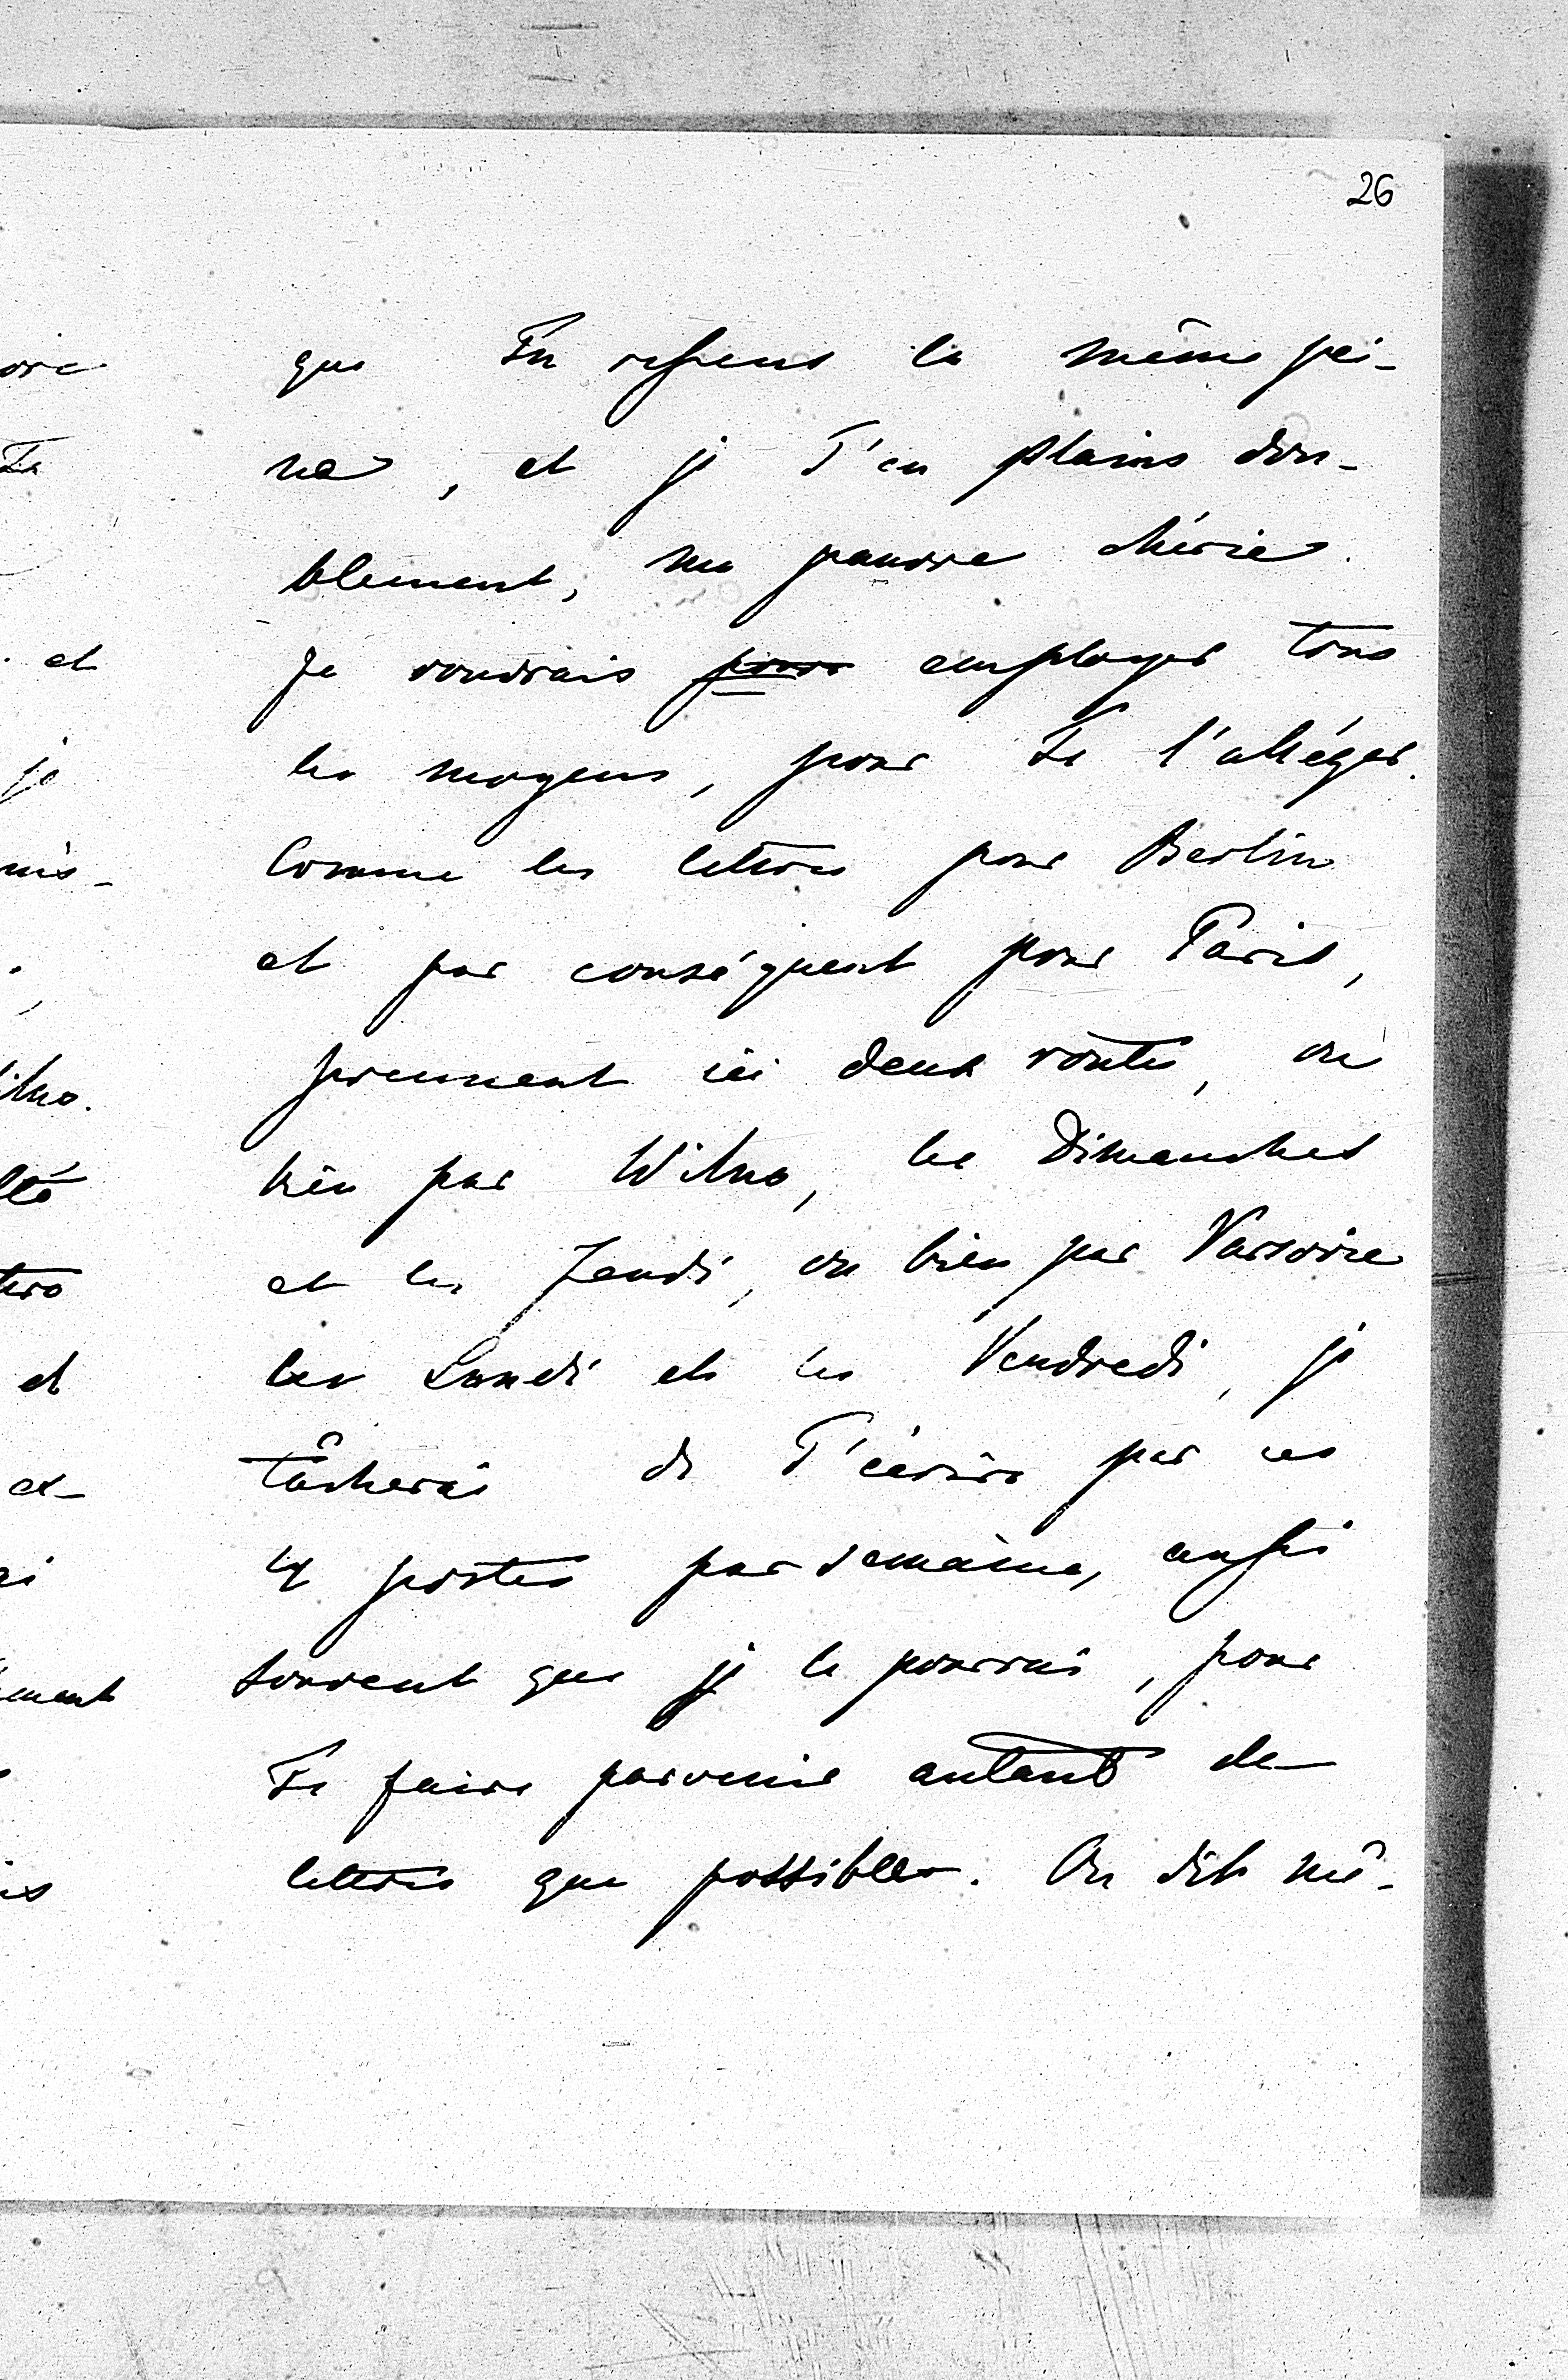 26
que Tu ressens la même pei-
ne, et je T'en plains dou-
blement, ma pauvre chérie.
Je voudrais pour employer tous
les moyens, pour Te l'alléger.
Comme les lettres pour Berlin
et par conséquent pour Paris,
prennent ici deux routes, ou
bien par Wilno, les Dimanches
et les Jeudi, ou bien par Varsovie
les Lundi et les Vendredi, je
tâcherai de T'écrire par ces
4 postes par semaine, aussi
souvent que je le pourrai, pour
Te faire parvenir autant de
lettres que possible. On dit mê-